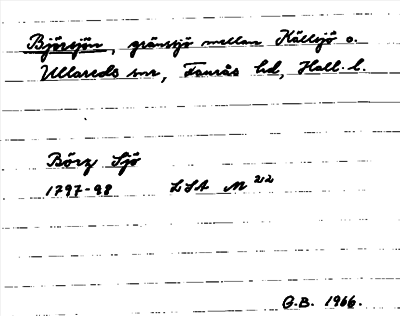 Björsjön, gränssjö mellan Källsjö o.
Ullareds snr, Faurås hd, Hall. l.
Börz Sjö
1797-98 LSA M 212
G.B. 1966.